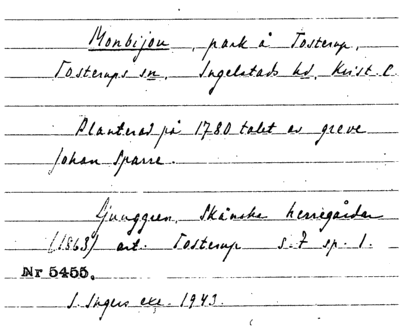 Monbijou, park å Tosterup,
Tosterups sn, Ingelstads hd, Krist. l.
Planterad på 1780 talet av greve
Johan Sparre.
Ljunggren, Skånska herregårdar
(1863) art. Tosterup s. 7 sp. 1.
Nr 5455.
S. Ingers exc. 1943.